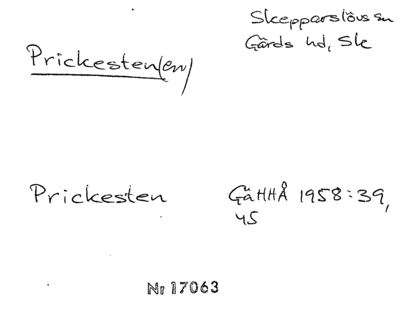 Skepparslövs sn
Gärds hd, Sk
Prickesten(en)
Prickesten GäHHÅ 1958:39,
45
Nr 17063